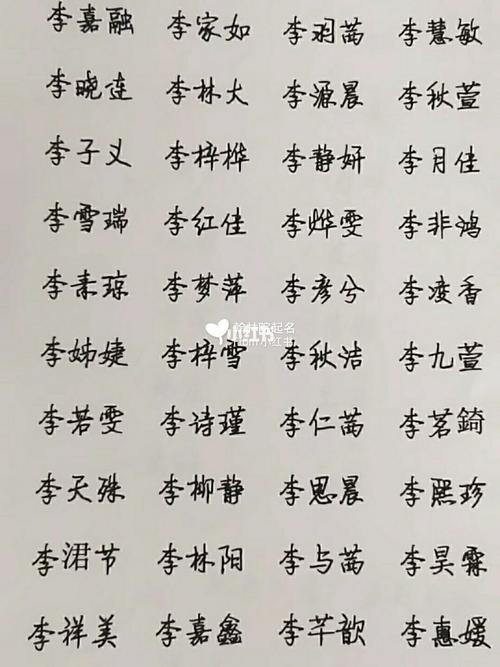 李嘉融 李家如 李羽茜 李慧敏
李晓连 李林大 李源晨 李秋萱
李子义 李梓桦 李静妍 李月佳
李雪瑞 李红佳 李烨雯 李非鸿
李素琼 李梦萍 李彦兮 李凌香
翰林院起名
小红书
李姊婕 李梓雪 李秋洁 李九萱
李若雯 李诗瑾 李仁茜 李茗錡
李天殊 李柳静 李思晨 李熙珍
李涒节 李林阳 李与茜 李昊霖
李祥美 李嘉鑫 李芊歆 李惠媛